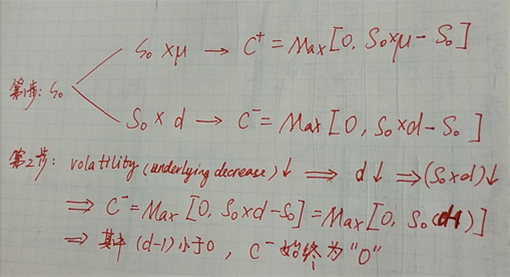 S₀×μ → C⁺ = Max [0, S₀×μ - S₀]
第1步: S₀
S₀ × d → C⁻ = Max [0, S₀×d - S₀]
第2步: volatility (underlying decrease) ↓ ⟹ d ↓ ⟹ (S₀×d) ↓
⟹ C⁻ = Max [0, S₀×d-S₀] = Max [0, S₀(d-1)]
⟹ 其中 (d-1) 小于0, C⁻ 始终为 "0"